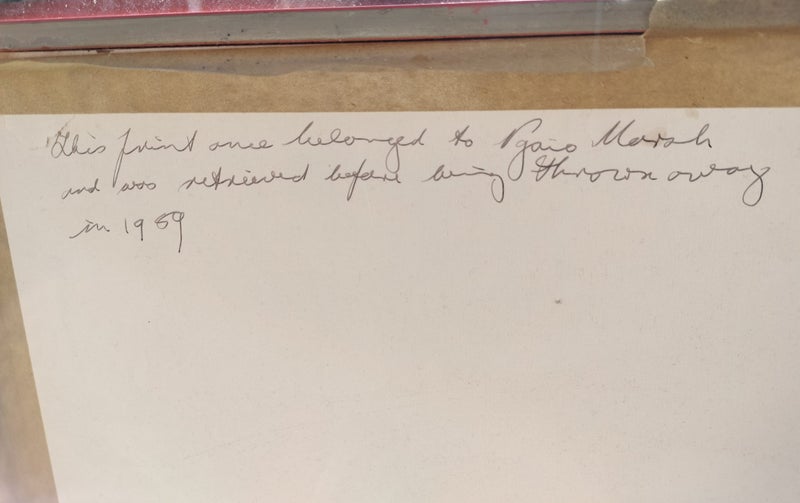 This print once belonged to Ngaio Marsh
and was retrieved before being thrown away
in 1989